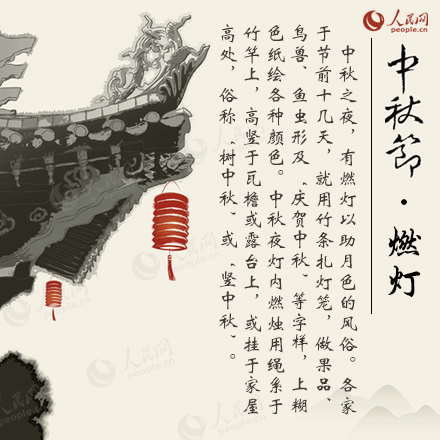 人民网
people.cn
中秋節·燃灯
中秋之夜，有燃灯以助月色的风俗。各家
于节前十几天，就用竹条扎灯笼，做果品、
鸟兽、鱼虫形及“庆贺中秋”等字样，上糊
色纸绘各种颜色。中秋夜灯内燃烛用绳系于
竹竿上，高竖于瓦檐或露台上，或挂于家屋
高处，俗称“树中秋”或“竖中秋”。